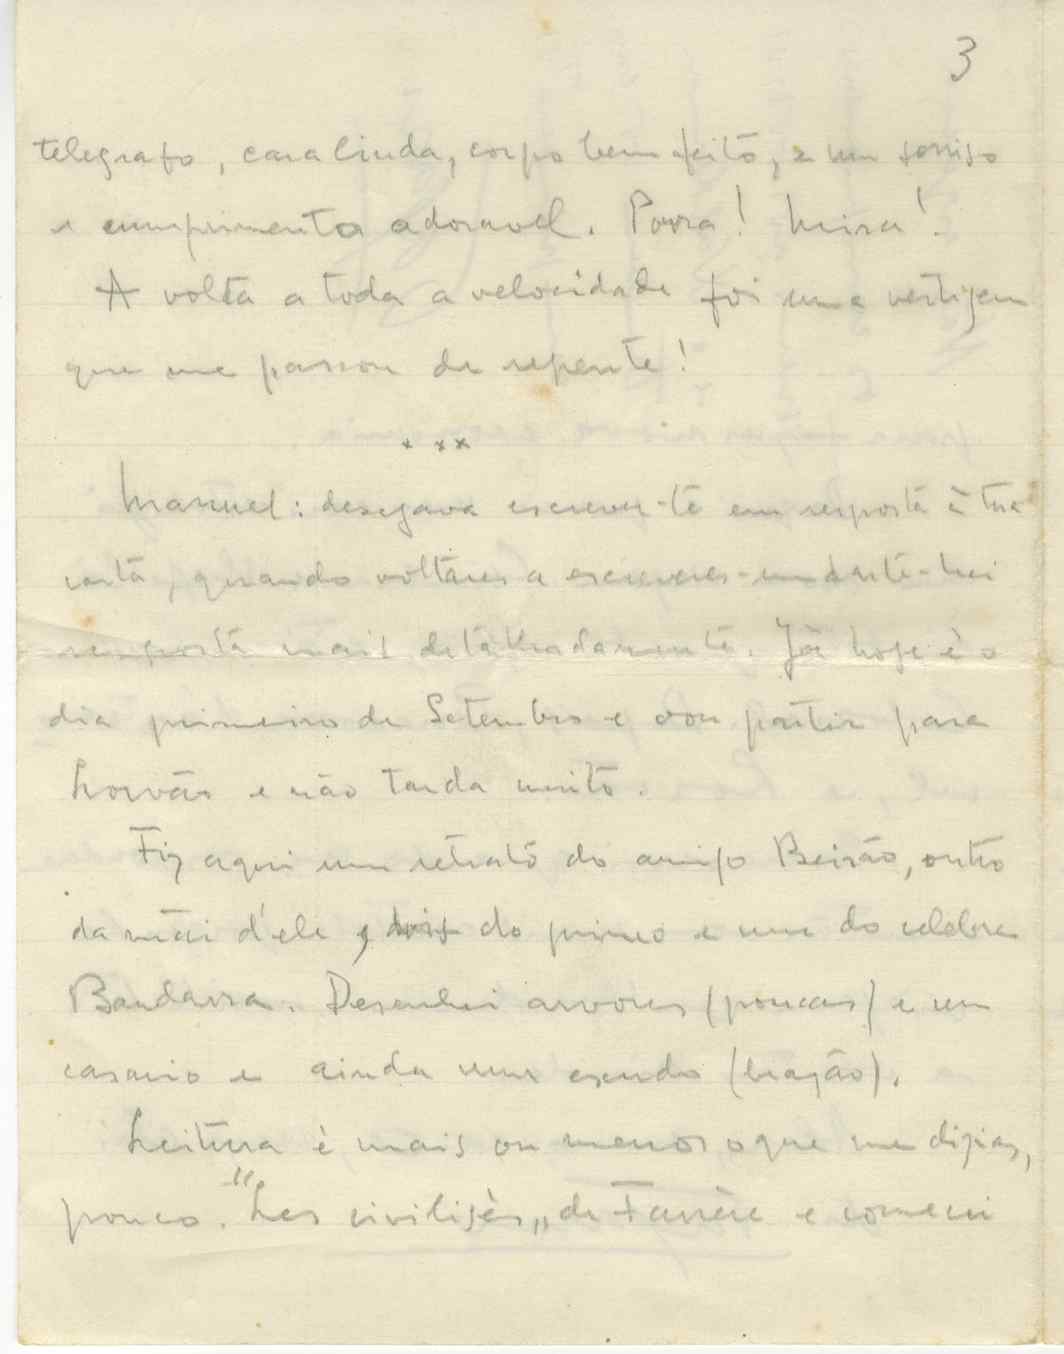 3
telegrafo, cara linda, corpo bem feito, e um sorriso
e cumprimento adoravel. Porra! Meira!
A volta a toda a velocidade foi uma vertigem
que me passou de repente!
* **
Manuel: desejava escrever-te em resposta à tua
carta, quando voltares a escreveres-me darte-hei
resposta mais detalhadamente. Já hoje è o
dia primeiro de Setembro e vou partir para
e não tarda muito.
Fiz aqui um retrato do amigo Beirão, outro
da mãi d'ele, dois do primo e um do celebre
Bandarra. Desenhei arvores (poucas) e um
casario e ainda um escudo (brazão).
Leitura è mais ou menos o que me dizias,
pouco. "Les civilisès„ de Farrère e comecei